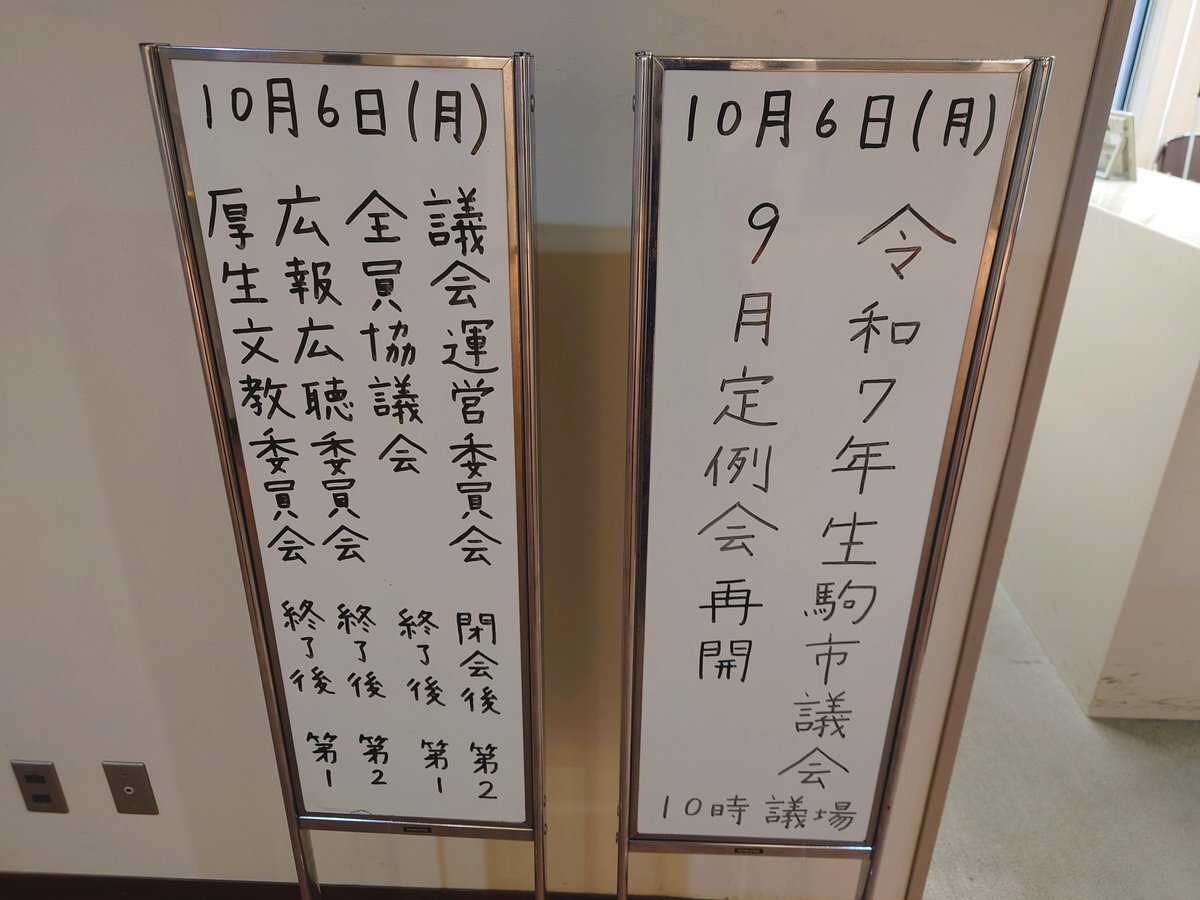 10月6日(月)
議会運営委員会 閉会後 第2
全員協議会 終了後 第1
広報広聴委員会 終了後 第2
厚生文教委員会 終了後 第1
10月6日(月)
令和7年生駒市議会
9月定例会再開
10時 議場